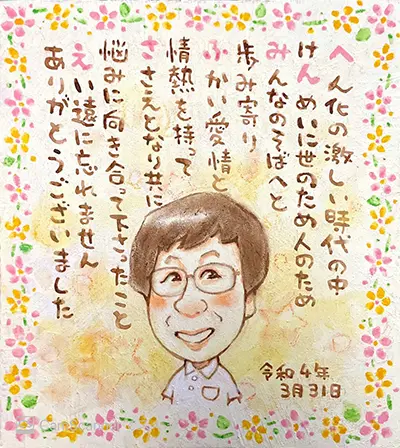 へん化の激しい時代の中
けんめいに世のため人のため
みんなのそばへと
歩み寄り
ふかい愛情と
情熱を持って
ささえとなり共に
悩みに向き合って下さったこと
えい遠に忘れません
ありがとうございました
令和4年
3月31日